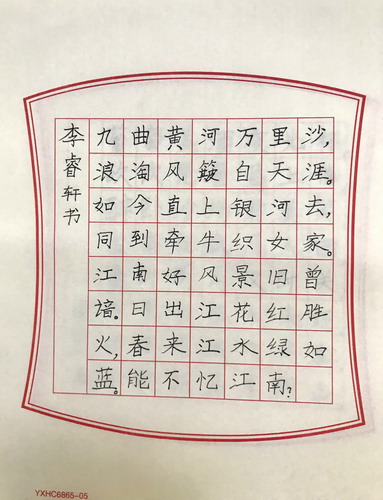 九曲黄河万里沙，
浪淘风簸自天涯。
如今直上银河去，
同到牵牛织女家。
江南好风景旧曾
谙。日出江花红胜
火，春来江水绿如
蓝。能不忆江南？
李睿轩书
YXHC6865-05